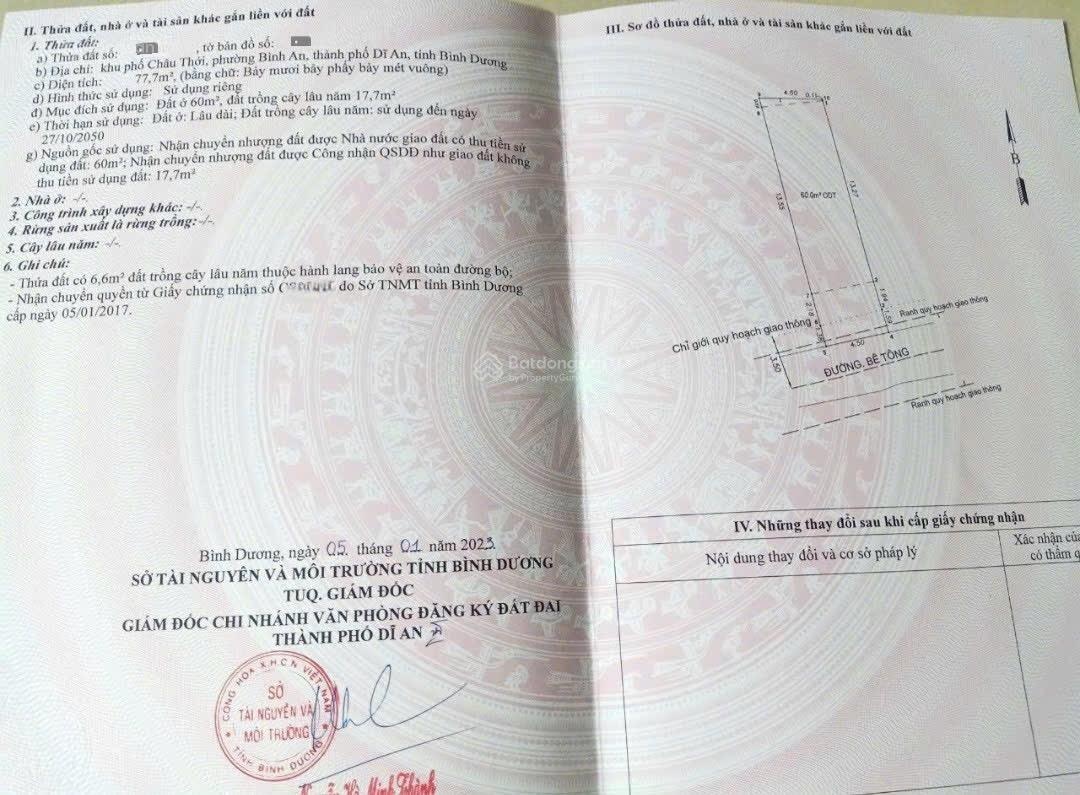 II. Thửa đất, nhà ở và tài sản khác gắn liền với đất
1. Thửa đất:
a) Thửa đất số: , tờ bản đồ số:
b) Địa chỉ: khu phố Châu Thới, phường Bình An, thành phố Dĩ An, tỉnh Bình Dương
c) Diện tích: 77,7m², (bằng chữ: Bảy mươi bảy phẩy bảy mét vuông)
d) Hình thức sử dụng: Sử dụng riêng
đ) Mục đích sử dụng: Đất ở 60m², đất trồng cây lâu năm 17,7m²
e) Thời hạn sử dụng: Đất ở: Lâu dài; Đất trồng cây lâu năm: sử dụng đến ngày
27/10/2050
g) Nguồn gốc sử dụng: Nhận chuyển nhượng đất được Nhà nước giao đất có thu tiền sử
dụng đất: 60m²; Nhận chuyển nhượng đất được Công nhận QSDĐ như giao đất không
thu tiền sử dụng đất: 17,7m²
2. Nhà ở: -/-
3. Công trình xây dựng khác: -/-
4. Rừng sản xuất là rừng trồng: -/-
5. Cây lâu năm: -/-
6. Ghi chú:
- Thửa đất có 6,6m² đất trồng cây lâu năm thuộc hành lang bảo vệ an toàn đường bộ;
- Nhận chuyển quyền từ Giấy chứng nhận số do Sở TNMT tỉnh Bình Dương
cấp ngày 05/01/2017.
Bình Dương, ngày 05 tháng 01 năm 2023
SỞ TÀI NGUYÊN VÀ MÔI TRƯỜNG TỈNH BÌNH DƯƠNG
TUQ. GIÁM ĐỐC
GIÁM ĐỐC CHI NHÁNH VĂN PHÒNG ĐĂNG KÝ ĐẤT ĐAI
THÀNH PHỐ DĨ AN
CỘNG HÒA X.H.C.N VIỆT NAM
SỞ
TÀI NGUYÊN VÀ
MÔI TRƯỜNG
TỈNH BÌNH DƯƠNG
Hà Minh Thành
Batdongsan
by PropertyGuru
III. Sơ đồ thửa đất, nhà ở và tài sản khác gắn liền với đất
4.50
B
13.55
60.0m² ODT
13.27
2.18
1.94
1.38
1.59
Ranh quy hoạch giao thông
Chỉ giới quy hoạch giao thông
3.50
4.50
ĐƯỜNG BÊ TÔNG
Ranh quy hoạch giao thông
IV. Những thay đổi sau khi cấp giấy chứng nhận
Nội dung thay đổi và cơ sở pháp lý
Xác nhận của
có thẩm q